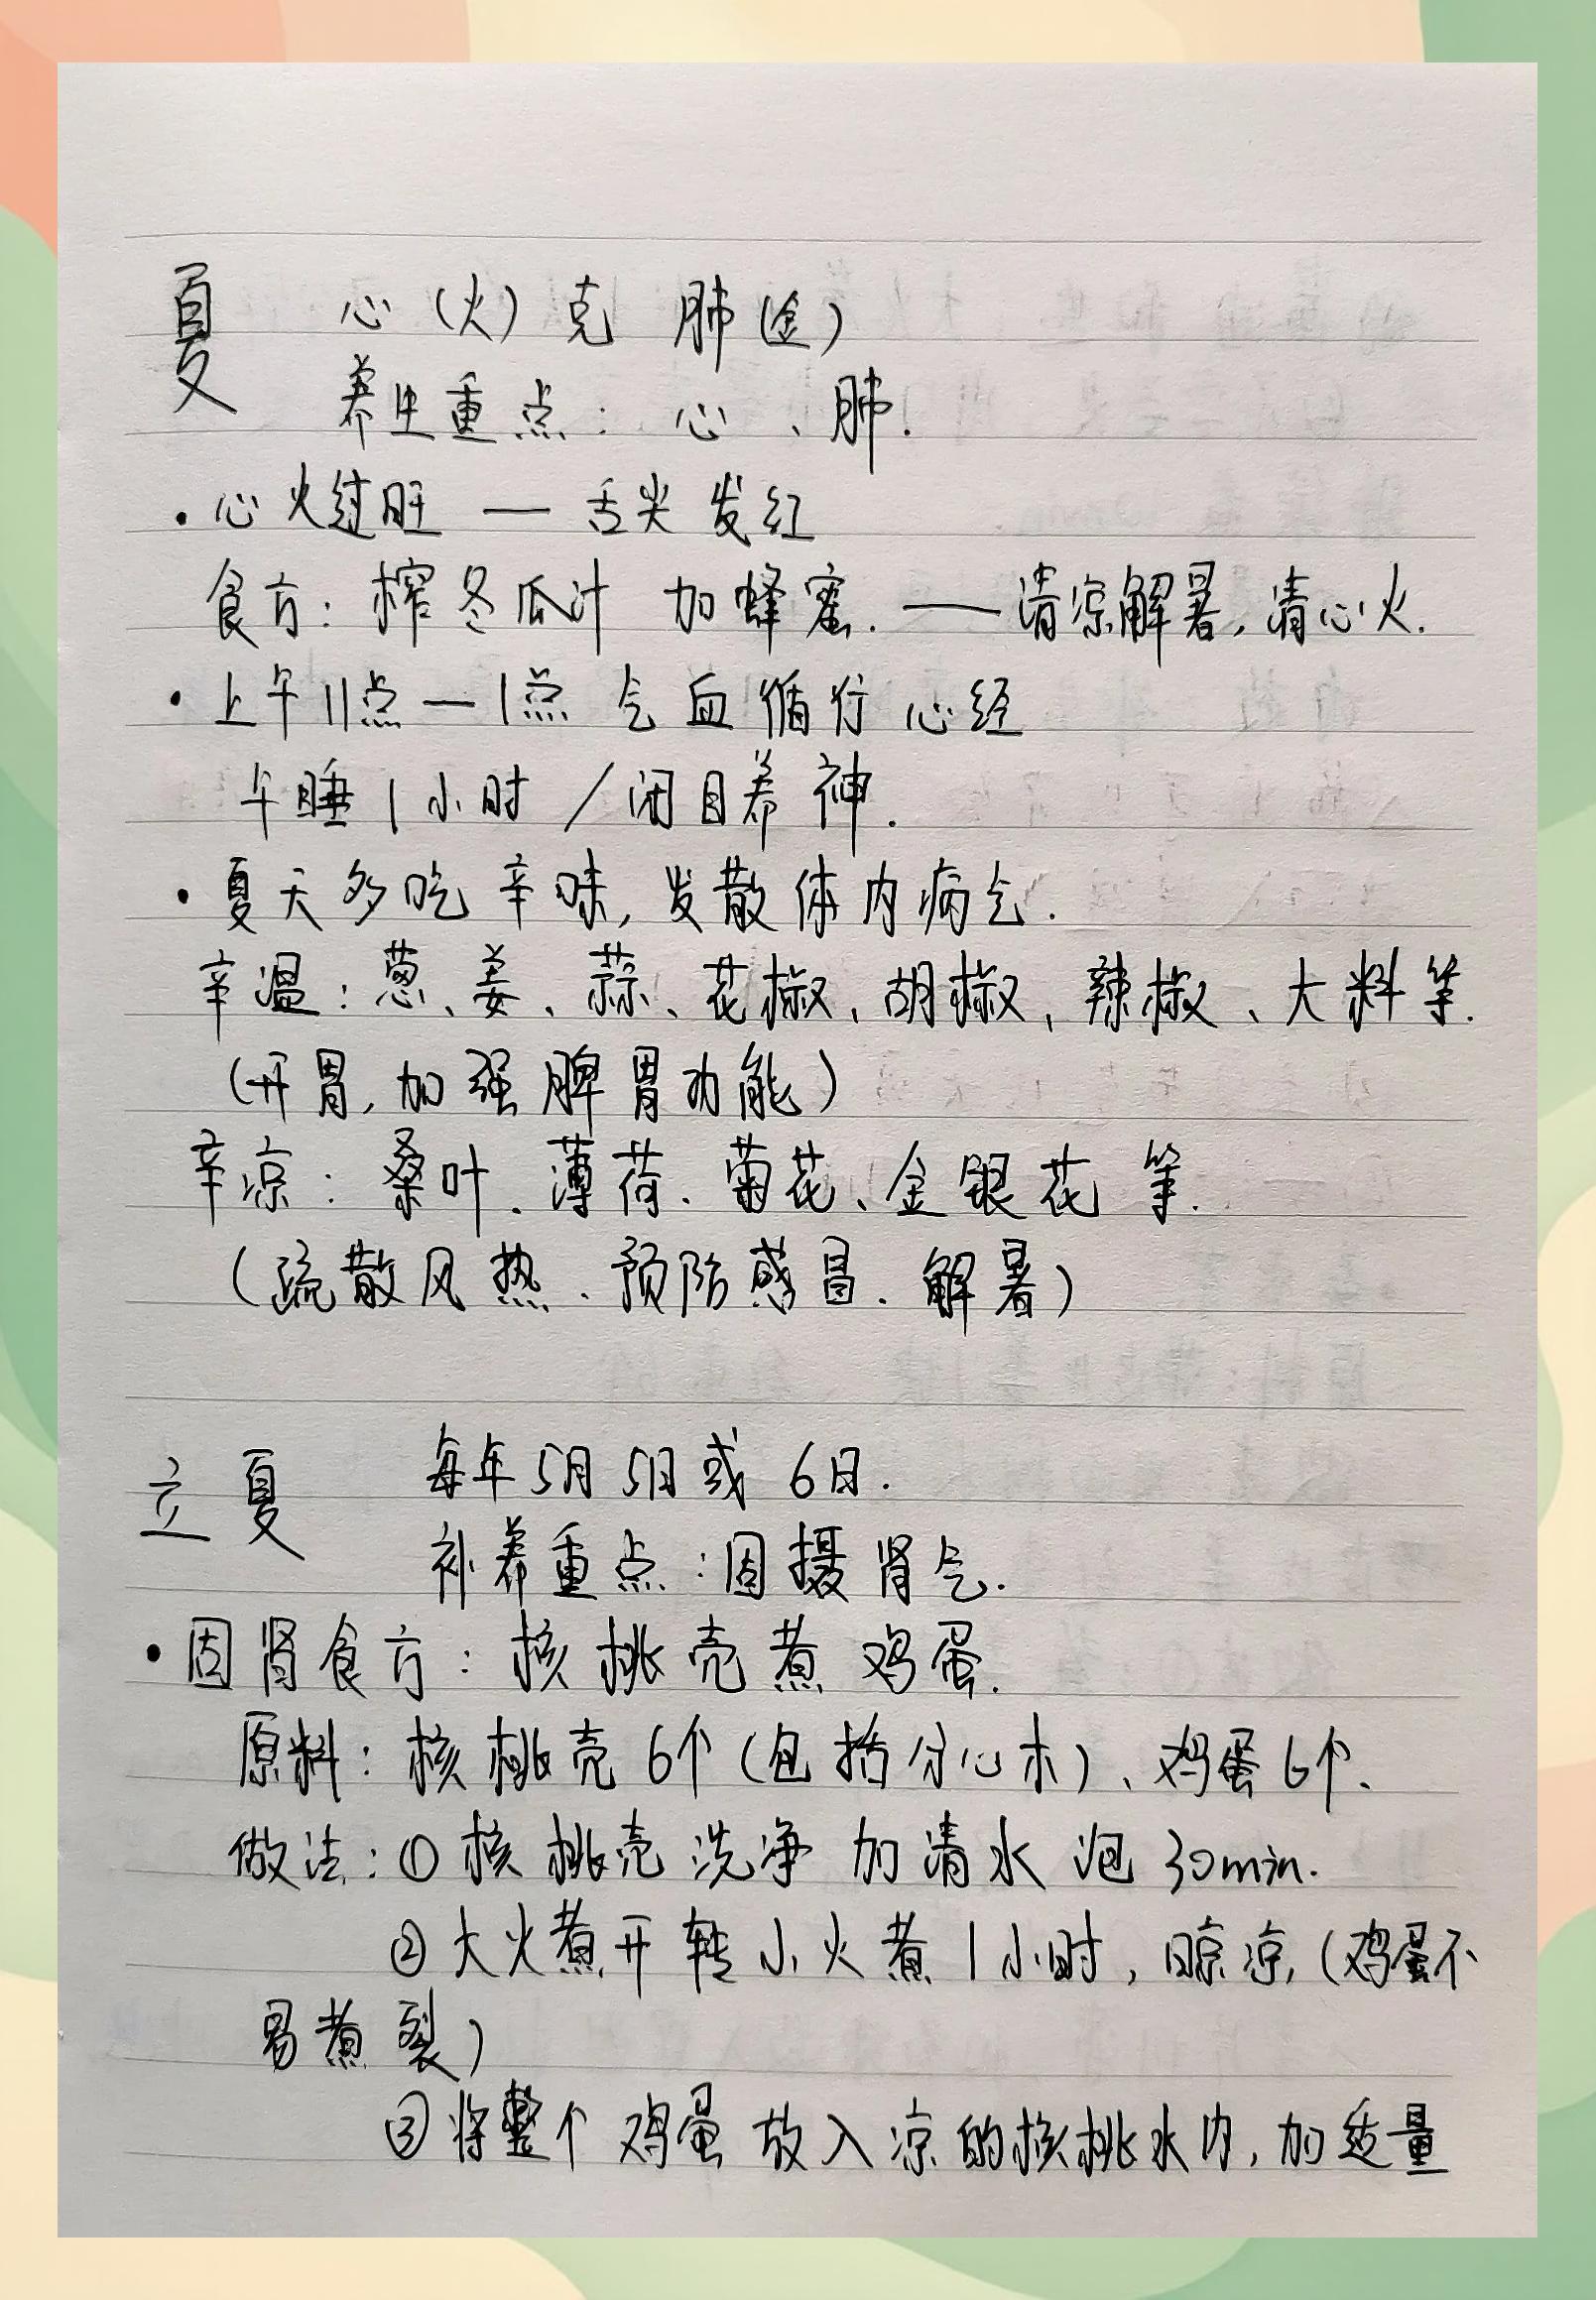 夏 心(火)克 肺(金)
养生重点: 心、肺.
·心火过旺 — 舌尖发红
食方: 榨冬瓜汁 加蜂蜜. —清凉解暑,清心火.
·上午11点—1点 气血循行心经
午睡1小时/闭目养神.
·夏天多吃辛味,发散体内病气.
辛温:葱、姜、蒜、花椒、胡椒、辣椒、大料等.
(开胃,加强脾胃功能)
辛凉: 桑叶、薄荷、菊花、金银花等.
(疏散风热、预防感冒、解暑)
立夏 每年5月5日或6日.
补养重点:固摄肾气.
·固肾食方: 核桃壳煮鸡蛋.
原料: 核桃壳6个(包括分心木)、鸡蛋6个、
做法:①核桃壳洗净 加清水泡30min.
②大火煮开转小火煮1小时,晾凉,(鸡蛋不
易煮裂)
③将整个鸡蛋放入凉的核桃水内,加适量